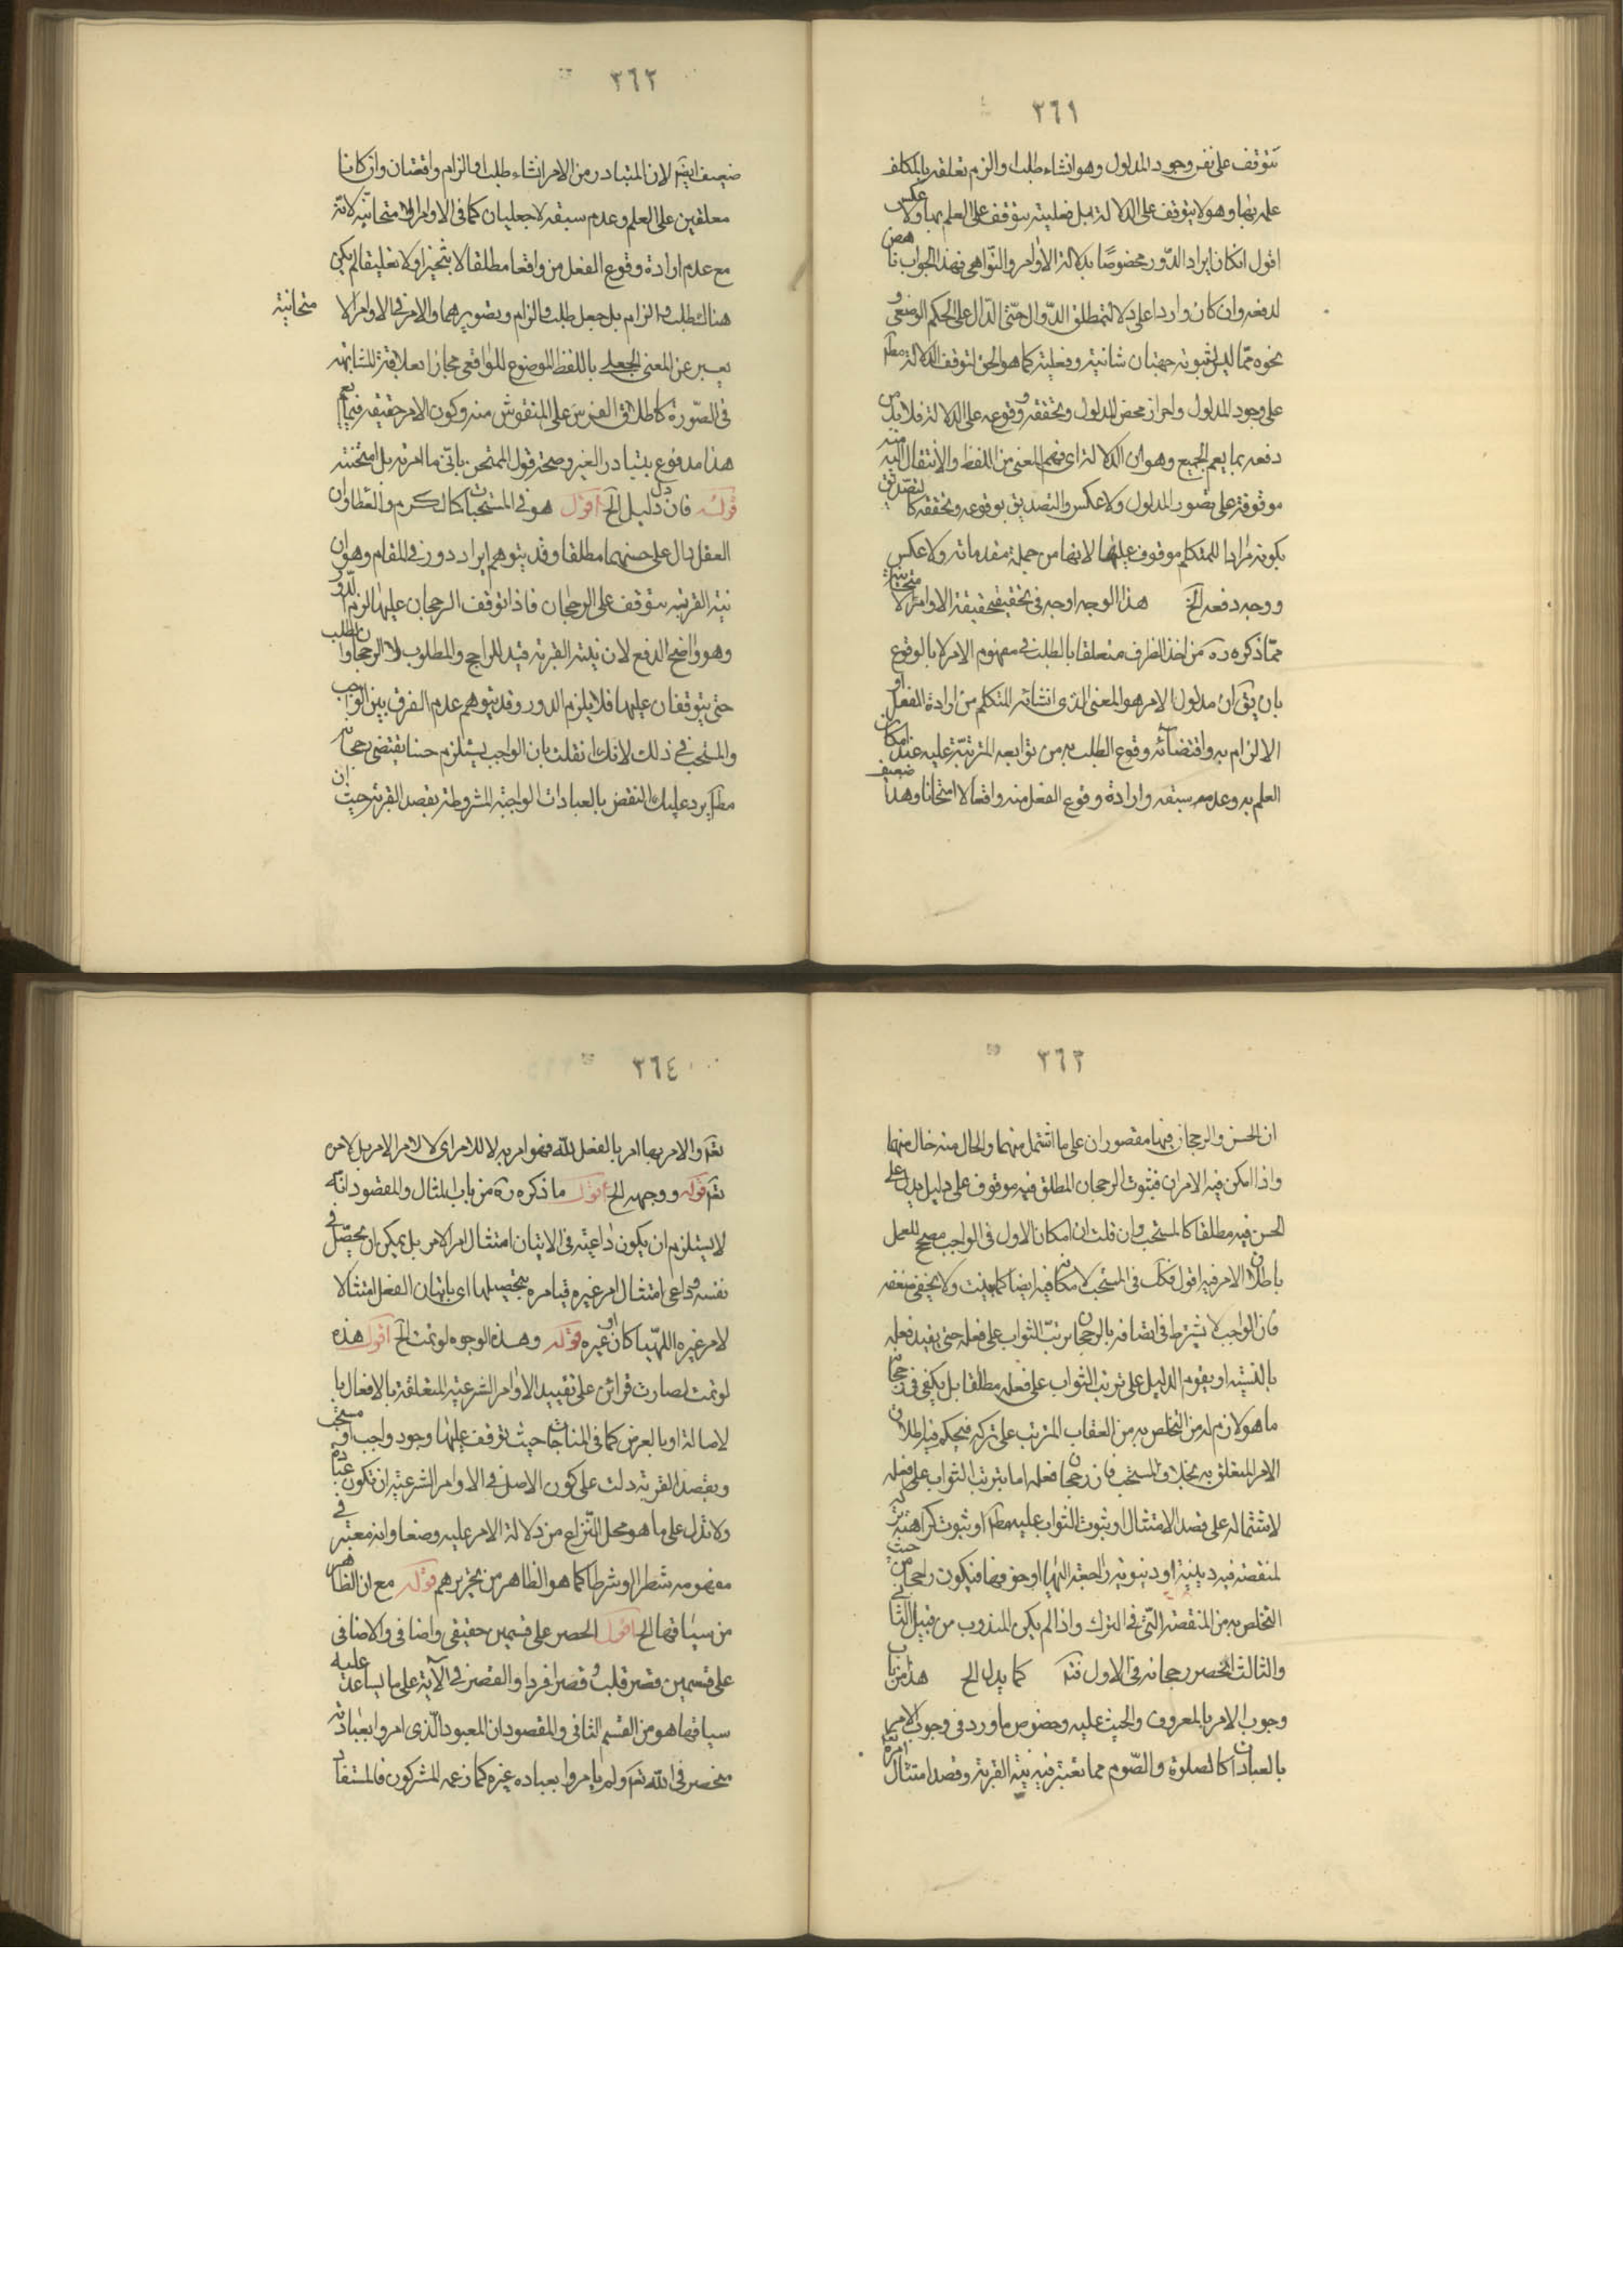 ٣٦١
يتوقف على نفس وجود المدلول وهو انشاء طلب او الزم تعلقه بالمكلف
علمه بها وهو لا يتوقف على الدلالة بل فعليته يتوقف على العلم بها ولا عكس
اقول ان كان ايراد الدّور مخصوصًا بدلالة الأوامر والنّواهي فهذا الجواب ناهض
لدفعه وان كان واردا على دلالة مطلق الدّوال حتّى الدّال على الحكم الوضعى و
نحوه ممّا ليس لثبوته جهتان شانية وفعلية كما هو الحق لتوقف الدلالة مطلقا
على وجود المدلول واحراز محض المدلول وتحققه ووقوعه على الدلالة فلابد من
دفعه بما يعم الجميع وهو ان الدلالة اى فهم المعنى من اللفظ والانتقال اليه منه
موقوفة على تصور المدلول ولا عكس والتصديق بوقوعه وتحققه كالتصديق
بكونه مرادا للمتكلم موقوف عليها لانها من جملة مقدماته ولا عكس
ووجه دفعه الخ هذا الوجه اوجه فى تحقيق حقيقة الاوامر الامتحانية
ممّا ذكره ره من اخذ الظرف متعلقا بالطلب فى مفهوم الامر لا بالوقوع
بان يق ان مدلول الامر هو المعنى الذى انشائه المتكلم من ارادة الفعل او
الالزام به واقتضائه وقوع الطلب به من توابعه المترتبّة عليه عند امكان
العلم به وعدم سبقه وارادة وقوع الفعل منه واقعا لا امتحانا وهذا ضعيف
٣٦٢
ضعيف ايضم لان المتبادر من الامر انشاء طلب او الزام واقعيّان وان كانا
معلقين على العلم وعدم سبقه لا جعليان كما فى الاوامر الامتحانيّه لانّه
مع عدم ارادة وقوع الفعل من واقعا مطلقا لا تنجيزا ولا تعليقا لم يكن
هناك طلب و الزام بل جعل طلب و الزام وتصويرهما والامر فى الاوامر الا
متحانية
يعبر عن المعنى الجعلى باللفظ الموضوع للواقعى مجازا بعلاقة المشابهة
فى الصّورة كاطلاق الفرس على المنقوش منه وكون الامر حقيقه فيما يعم
هذا مدفوع بتبادر الغير وصحة قول الممتحن باتّى ما امرته بل امتحنته
قوله فان دل دليل الخ اقول هو فى المستحبات كالكرم والعطا وان
العقل دال على حسنهما مطلقا وقد يتوهم ايراد دور فى المقام وهو ان
نية القربة يتوقف على الرجحان فاذا توقف الرجحان عليها لزم الدّور
وهو واضح الدفع لان نية القربة قيد للراجح والمطلوب لا الرجحان والطلب
حتى يتوقفان عليها فلا يلزم الدور وقد يتوهم عدم الفرق بين الواجب
والمستحب فى ذلك لانك ان قلت بان الواجب يستلزم حسنا يقتضى رجحانه
مطلقا يرد عليك النقض بالعبادات الواجبة المشروطة بقصد القربة حيث ان
٣٦٣
ان الحسن والرجحان فيها مقصوران على ما اشتمل منهما والخال منه خال منهما
واذا امكن فيه الامران فثبوت الرجحان المطلق فيه موقوف على دليل يدل على
الحسن فيه مطلقا كالمستحب وان قلت ان امكان الاول فى الواجب مصحح للعمل
باطلاق الامر فيه اقول فكك فى المستحب لامكانه فيه ايضا كما بينت ولا يخفى ضعفه
فان الواجب لا يشترط فى اتصافه بالرجحان ترتبّ الثواب على فعله حتى يقيد فعله
بالنسيه او يقوم الدليل على ترتب الثواب على فعله مطلقا بل يكفى فى رجحانه
ما هو لازم له من التخلص به من العقاب المترتب على تركه فيحكم فيه باطلاق
الامر المتعلق به بخلاف المستحب فان رجحان فعله اما بترتب الثواب على فعله
لاشتماله على قصد الامتثال او بثبوت الثواب عليه مطلقا او ثبوت كراهة تركه
لمنقصة فيه دينية او دنيوية راجعة اليها او خوفها فيكون راجحا من حيث
التخلص به من المنقصة الّتى فى الترك واذا لم يكن المندوب من قبيل الثانى
والثالث انحصر رجحانه فى الاول فتم كما يدل الخ هذا من باب
وجوب الامر بالمعروف والحث عليه وخصوص ما ورد فى وجوب الامر بها
بالعبادات كالصلوة والصّوم مما يعتبر فيه نية القربة وقصد امتثال امره
٣٦٤
تعم والامر بها امر بالفعل لله فهو امر به لا للامر اى لا لامر الامر بل لامره
تعم قوله ووجهه الخ اقول ما ذكره ره من باب المثال والمقصود انّه
لا يستلزم ان يكون داعيته فى الاتيان امتثال امر الامر بل يمكن ان يحصّل فى
نفسه داعى امتثال امر غيره فيامره بتحصيلها اى باتيان الفعل امتثالا
لامر غيره اللهّيا كان او غيره قوله وهذه الوجوه لو تمت الخ اقول هذه
لو تمت لصارت قرائن على تقييد الاوامر الشرعية المتعلقة بالافعال با
لاصالة او بالعرض كما فى المناجات حيث يتوقف عليها وجود واجب او مستحب
وبقصد القربة دلت على كون الاصل فى الاوامر الشرعية ان تكون عبادة
ولا تدل على ما هو محل النّزاع من دلالة الامر عليه وضعا وانه معتبر فى
مفهومه شطرا او شرطا كما هو الظاهر من تحريرهم قوله مع ان الظاهر
من سياقها الخ اقول الحصر على قسمين حقيقى واضافى والاضافى
على قسمين قصر قلب و قصر افراد والقصر فى الآية على ما يساعد عليه
سياقها هو من القسم الثانى والمقصود ان المعبود الّذى امروا بعبادته
منحصر فى الله تعم ولم يامروا بعباده غيره كما زعمه المشركون فالمستفاد